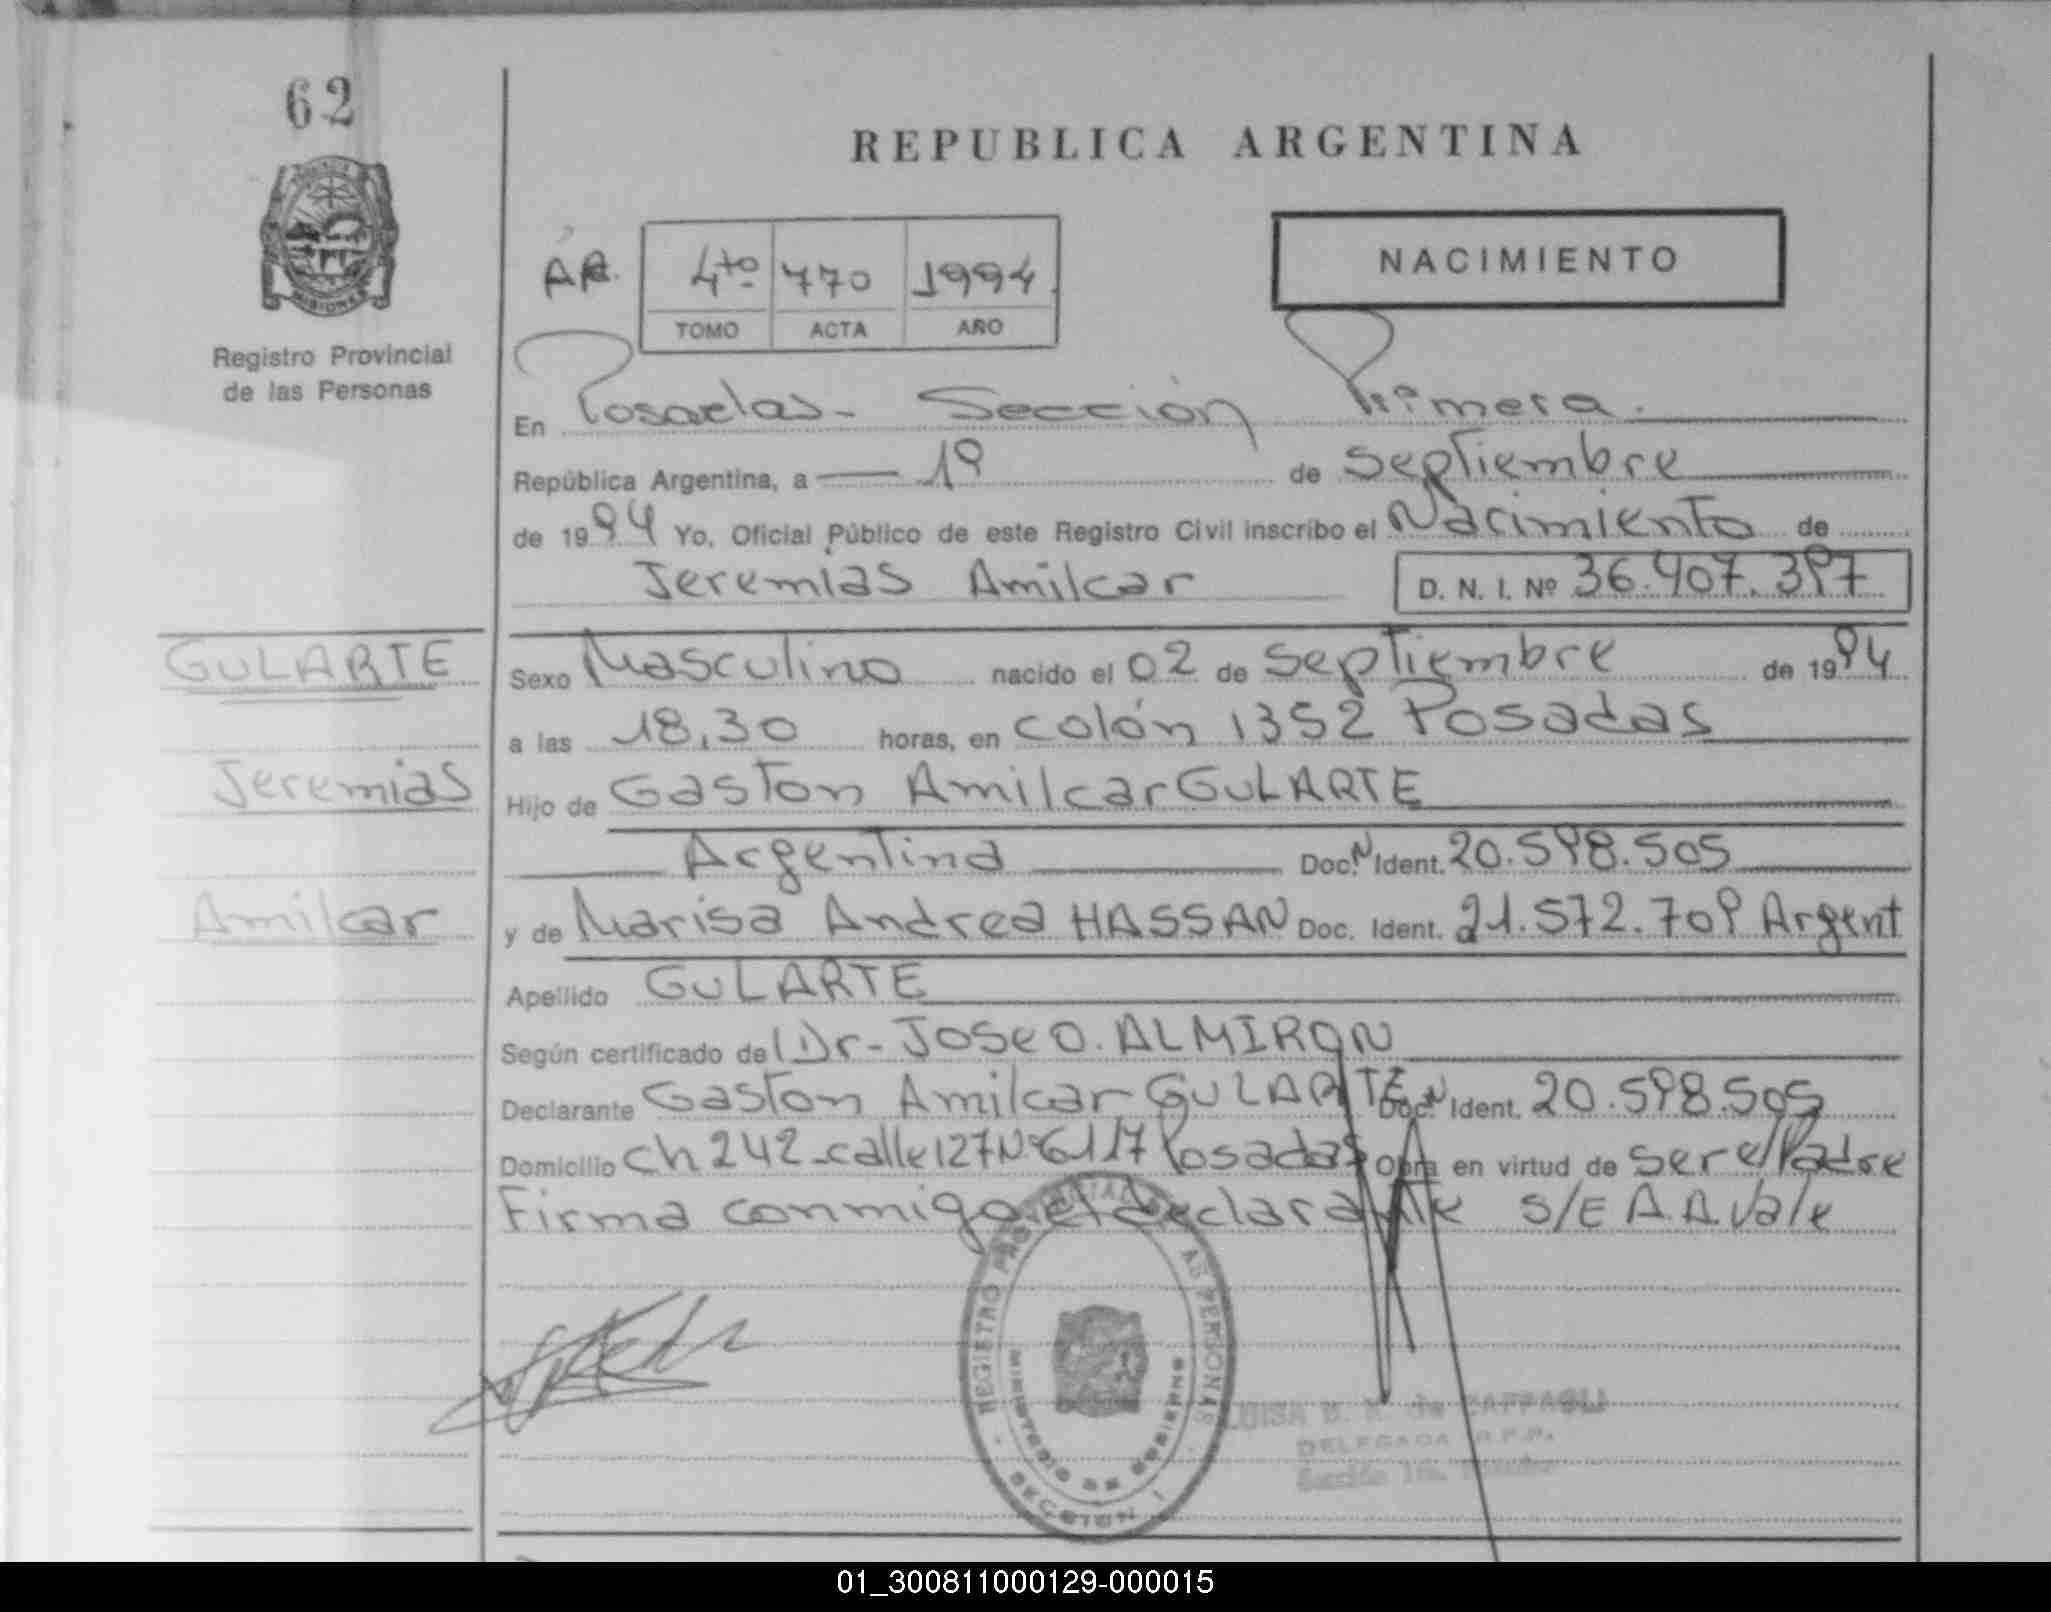 62
REPUBLICA ARGENTINA
NACIMIENTO
4to 770 1994
TOMO ACTA AÑO
MISIONES
Registro Provincial
de las Personas
En Posadas- Sección Primera.
República Argentina, a 19 de Septiembre
de 1994 Yo, Oficial Público de este Registro Civil inscribo el Nacimiento de
Jeremias Amilcar D. N. I. Nº 36.407.397
GULARTE
Jeremias
Amilcar
Sexo Masculino nacido el 02 de Septiembre de 1994
a las 18,30 horas, en Colón 1352 Posadas
Hijo de Gaston Amilcar GULARTE
Argentina Doc. N Ident. 20.598.505
y de Marisa Andrea HASSAN Doc. Ident. 21.572.709 Argent
Apellido GULARTE
Según certificado de Dr- Jose O. ALMIRON
Declarante Gaston Amilcar GULARTE Doc. N Ident. 20.598.505
Domicilio Ch 242-calle 127 Nº 6117 Posadas Obra en virtud de ser el Padre
Firma conmigo el declarante S/E A.A. Vale
REGISTRO PROVINCIAL DE LAS PERSONAS
MINISTERIO DE GOBIERNO
SECCION 1
LUISA B. de
DELEGADA R.P.P.
Sección 1ra. Posadas
01_300811000129-000015